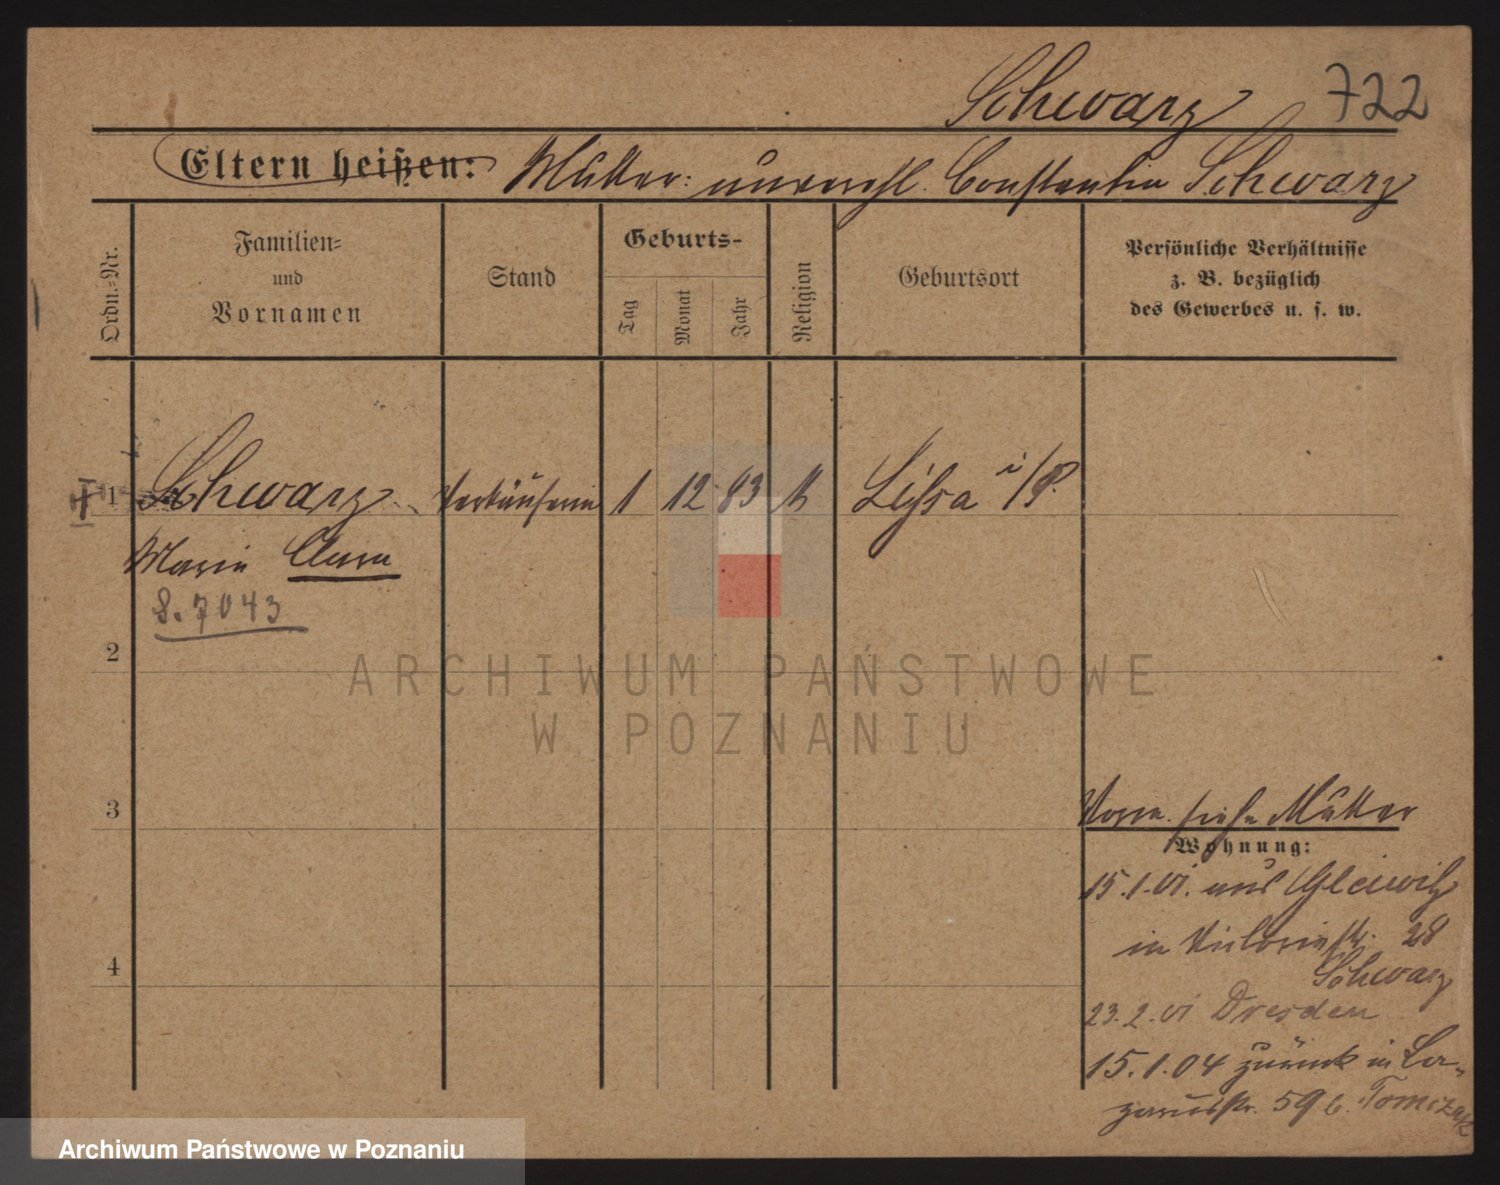 Schwarz 722
Eltern heißen: Mutter: unverehl. Constantia Schwarz
Ordn.=Nr.
Familien=
und
Vornamen
Stand
Geburts-
Tag
Monat
Jahr
Religion
Geburtsort
Persönliche Verhältnisse
z. B. bezüglich
des Gewerbes u. s. w.
1 Schwarz Verkäuferin 1 12 83 k Lissa i/P.
Marie Clara
S. 7043
2
3
4
Vorm. siehe Mutter
Wohnung:
15.1.01. aus Gleiwitz
in Victoriastr. 28
Schwarz
23.2.01 Dresden
15.1.04 zurück in La-
zarusstr. 59 b. Tomczak
ARCHIWUM PAŃSTWOWE
W POZNANIU
Archiwum Państwowe w Poznaniu